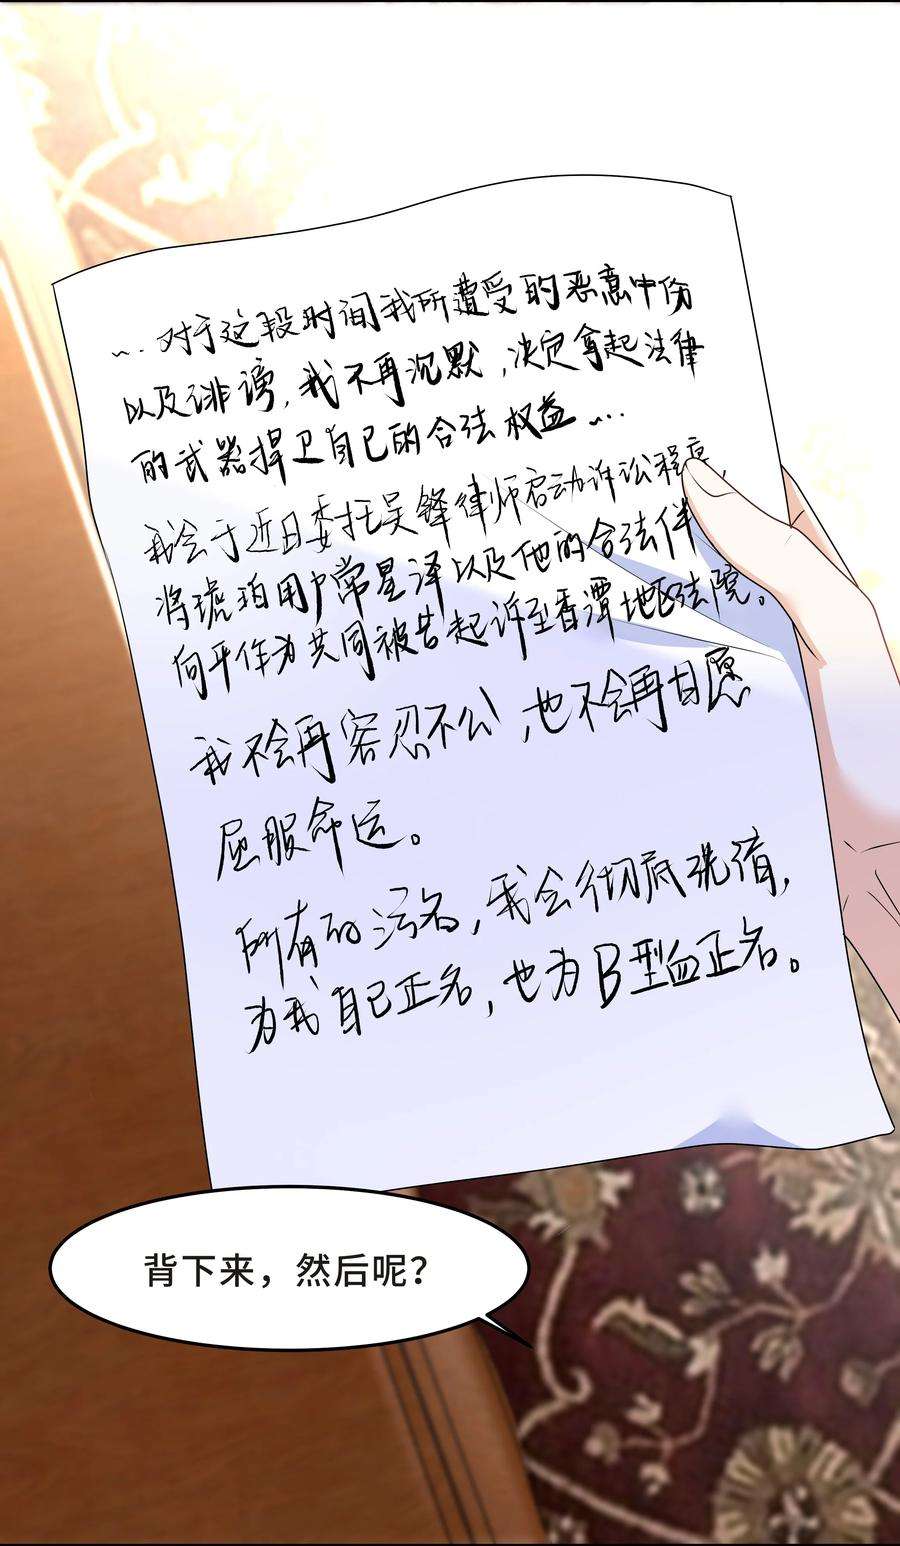 …对于这段时间我所遭受的恶意中伤
以及诽谤，我不再沉默，决定拿起法律
的武器捍卫自己的合法权益…
我会于近日委托吴锋律师启动诉讼程序，
将琥珀用户常星泽以及他的合法伴
向平作为共同被告起诉至香潭地区法院。
我不会再容忍不公，也不会再自愿
屈服命运。
所有的污名，我会彻底洗清，
为我自己正名，也为B型血正名。
背下来，然后呢？